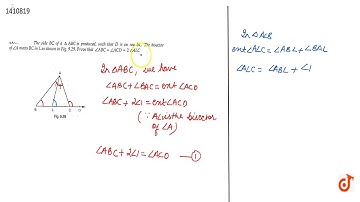 1410819
The side BC of a Δ ABC is produced, such that D is on ray BC. The bisector
of ∠A meets BC in L as shown in Fig. 9.29. Prove that ∠ABC + ∠ACD = 2 ∠ALC
A
B L C D
Fig. 9.29
In ΔABC, we have
∠ABC + ∠BAC = ext ∠ACD
∠ABC + 2∠1 = ext ∠ACD
(∵ AL is the bisector
of ∠A)
∠ABC + 2∠1 = ∠ACD —①
In Δ ALB
ext ∠ALC = ∠ABL + ∠BAL
∠ALC = ∠ABL + ∠1
doubtnut